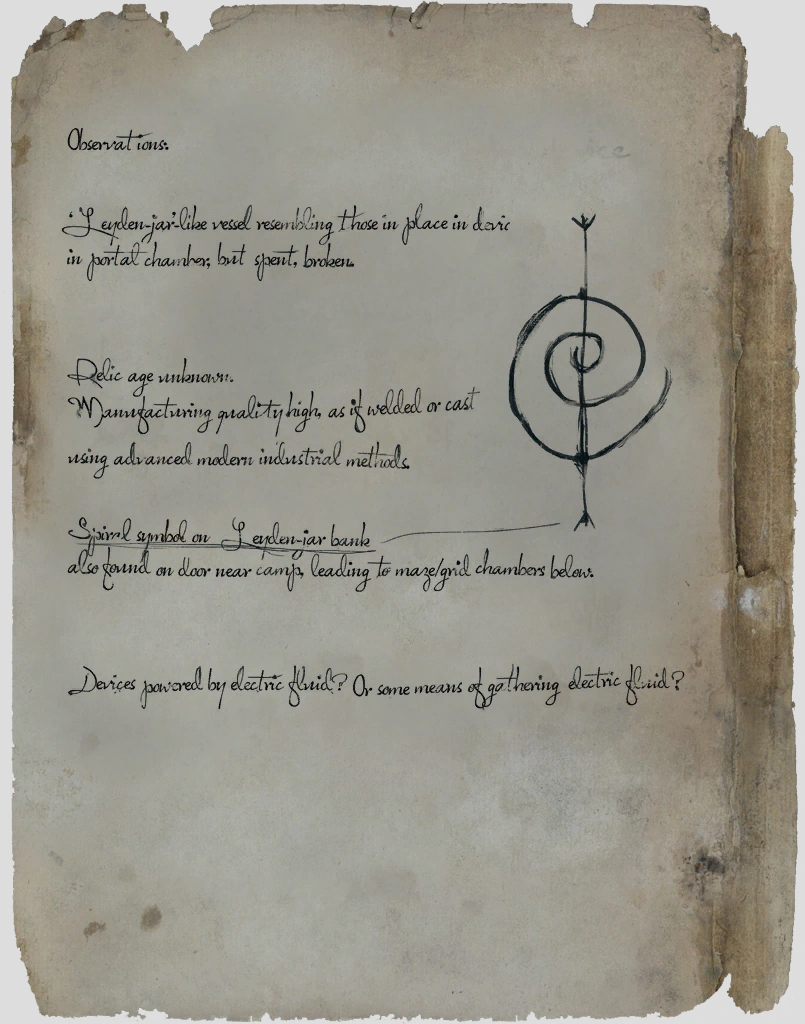 Observations:
'Leyden-jar'-like vessel resembling those in place in devic
in portal chamber, but spent, broken.
Relic age unknown.
Manufacturing quality high, as if welded or cast
using advanced modern industrial methods.
Spiral symbol on Leyden-jar bank
also found on door near camp, leading to maze/grid chambers below.
Devices powered by electric fluid? Or some means of gathering electric fluid?